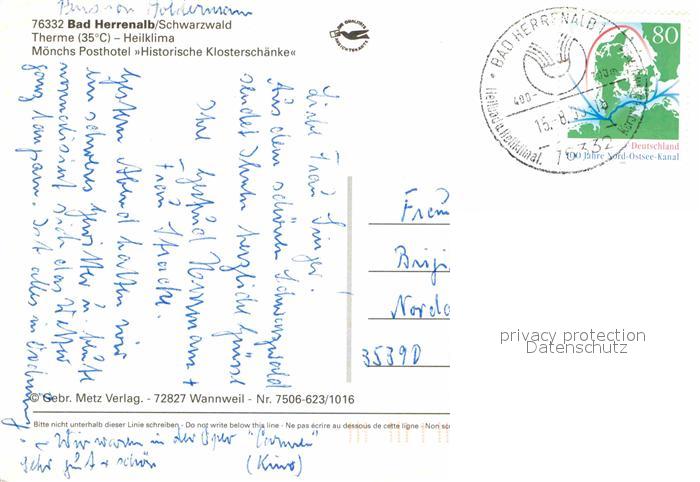 Pension Holdermann
76332 Bad Herrenalb/Schwarzwald
Therme (35°C) – Heilklima
Mönchs Posthotel »Historische Klosterschänke«
Liebe Frau Singer.
Aus dem schönen Schwarzwald
sendet Ihnen herzliche Grüsse
Ihr Herrmann +
Frau
Gestern Abend hatten wir
ein schweres Gewitter u. heute
normalisiert sich das Wetter
ganz langsam. Ist alles in Ordnung?
– Wir waren in der Oper "Carmen"
sehr gut + schön (Kino)
© Gebr. Metz Verlag. - 72827 Wannweil - Nr. 7506-623/1016
Bitte nicht unterhalb dieser Linie schreiben - Do not write below this line - Ne pas écrire au dessous de cette ligne - Non sc
BAD HERRENALB 1
15.-8.
76332
80
Deutschland
100 Jahre Nord-Ostsee-Kanal
Brigi
Nordd
35390
privacy protection
Datenschutz